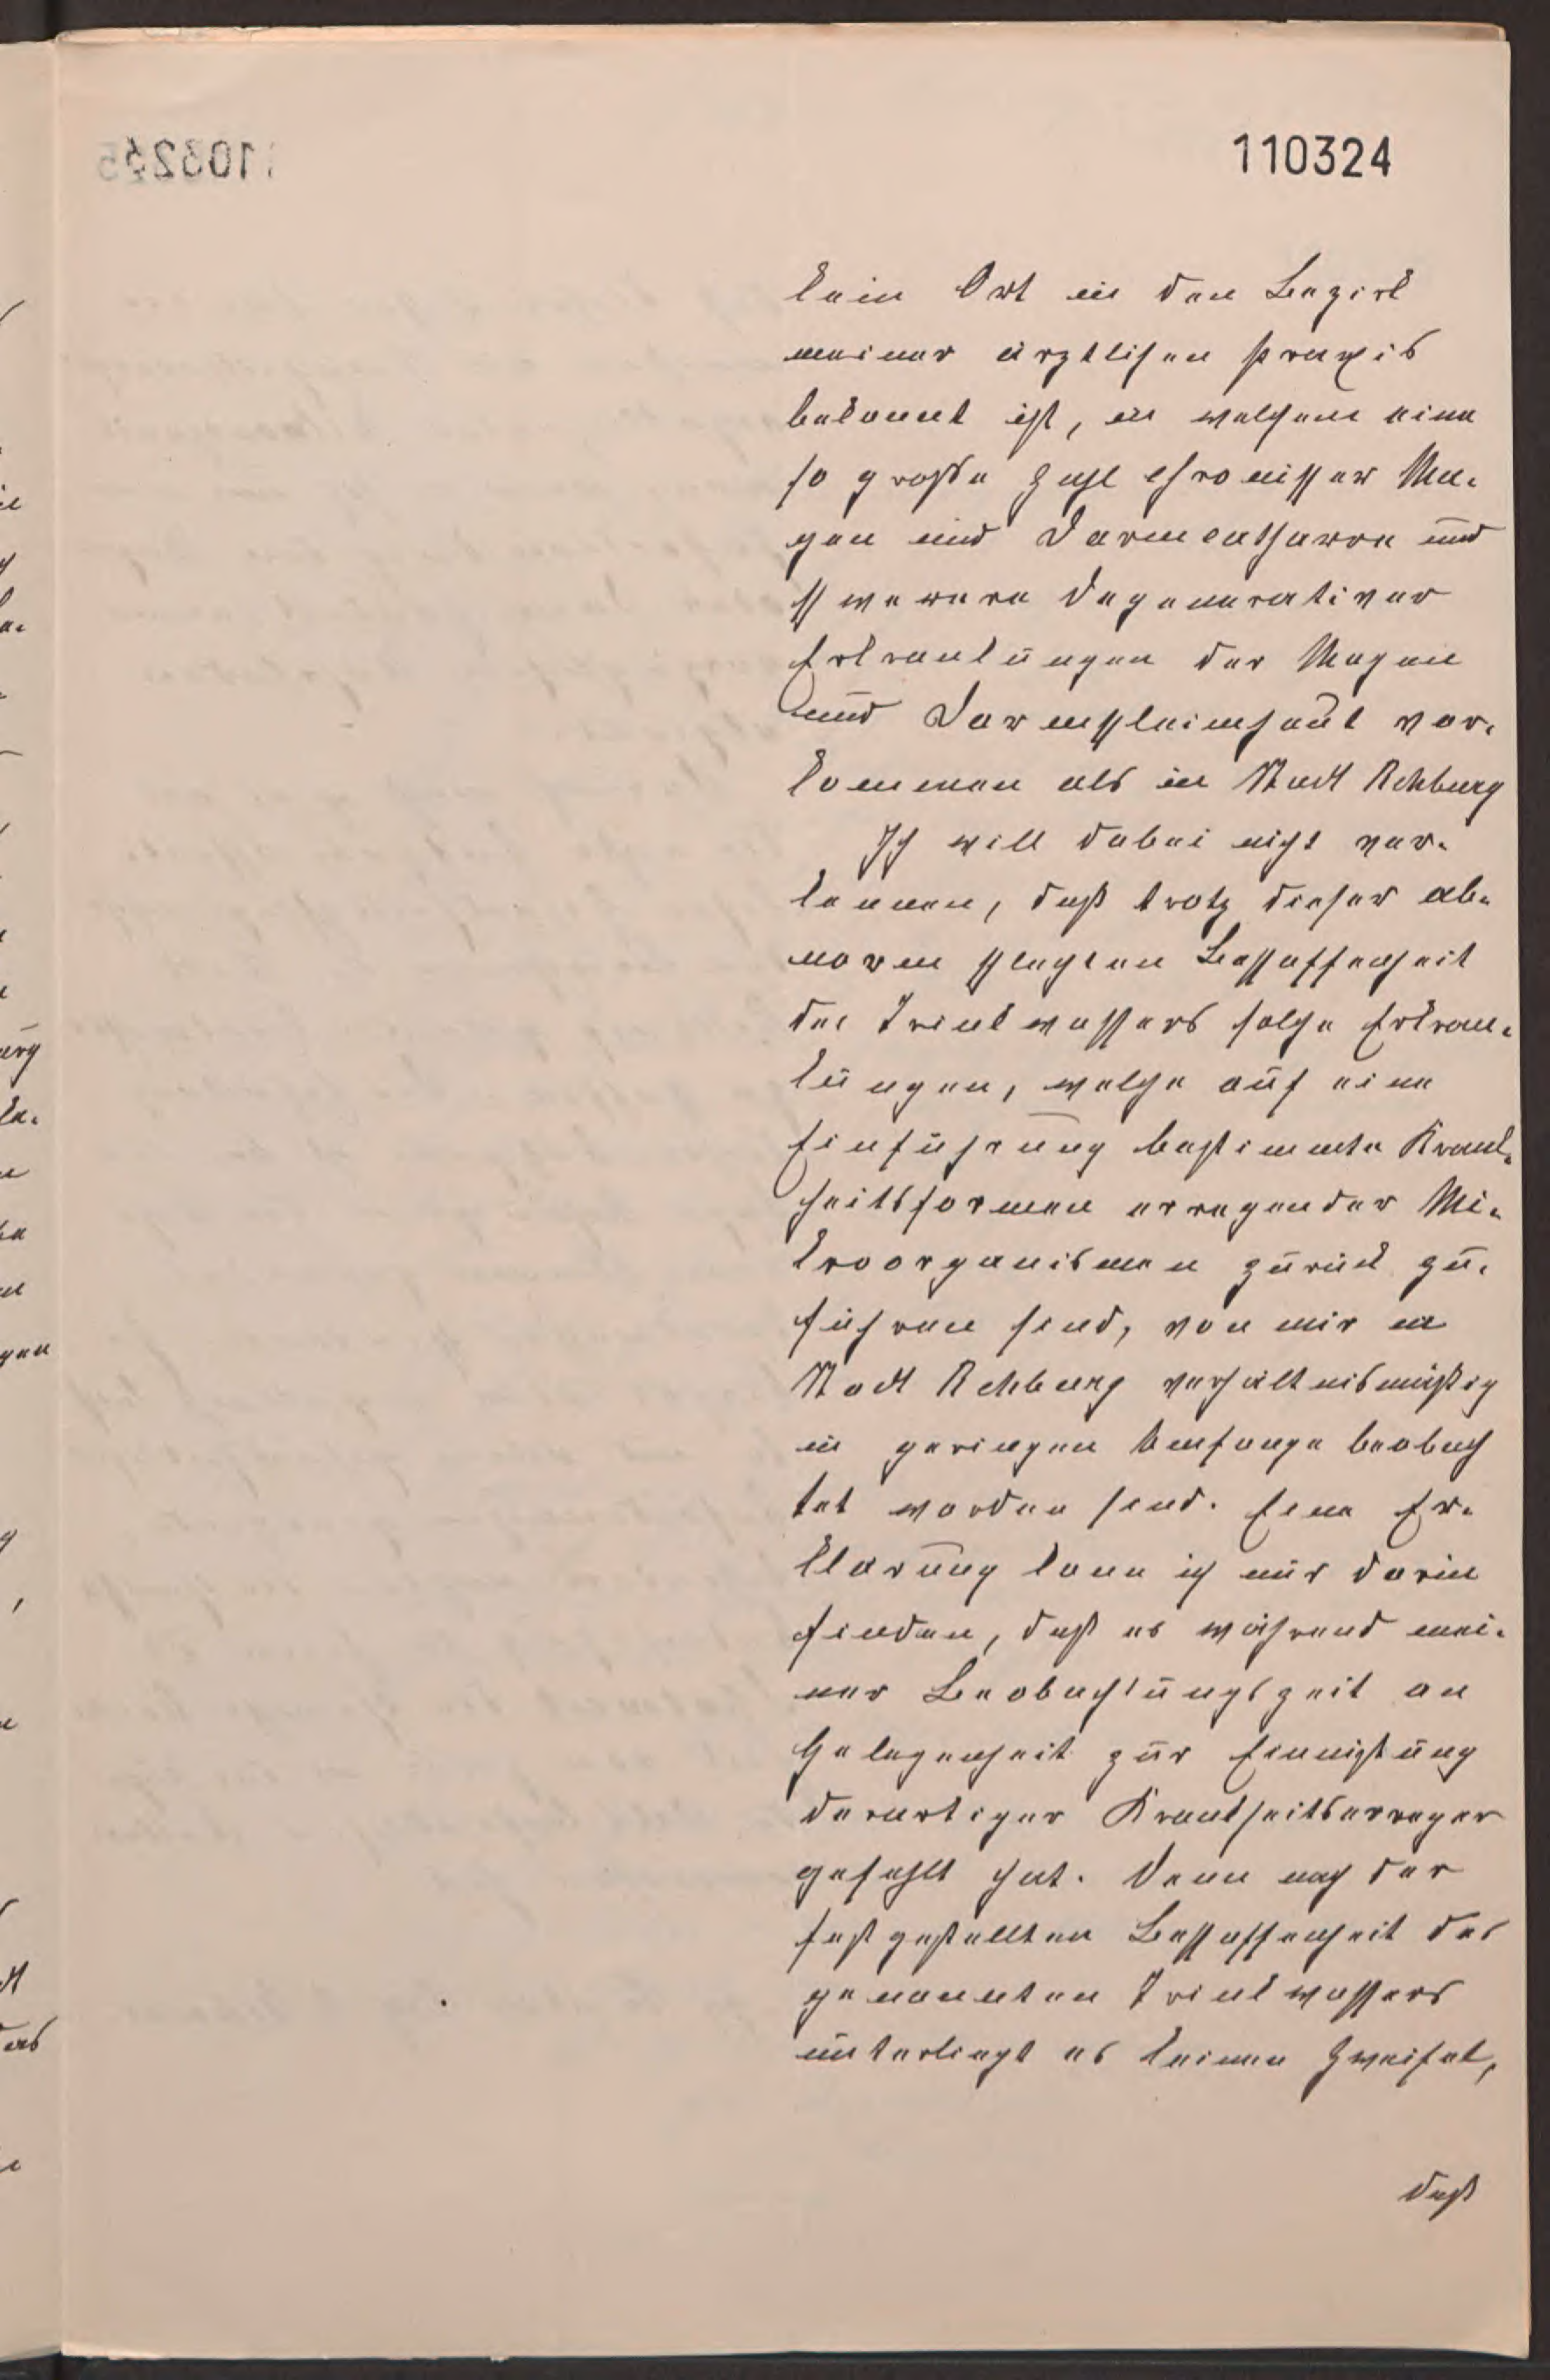 110324
kein Ort in den Bezirk
meiner ärztlichen Praxis
bekannt ist, in welchem eine
so große Zahl chronischer Ma-
gen und Darmcatharre und
schwerere degenerativer
Erkrankungen der Magen
und Darmschleimhaut vor-
kommen als in Stadt Rehburg
Ich will dabei nicht ver-
kennen, daß trotz dieser ab-
norm schlechten Beschaffenheit
des Trinkwassers solche Erkran-
kungen, welche auf eine
Einführung bestimmte Krank-
heitsformen erregender Mi-
kroorganismen zurück zu-
führen sind, von mir in
Stadt Rehburg verhältnismäßig
in geringen Umfange beobach
tet worden sind. Eine Er-
klärung kann ich nur darin
finden, daß es während mei-
ner Beobachtungszeit an
Gelegenheit zur Einnistung
derartiger Krankheitserreger
gefehlt hat. Denn nach der
festgestellten Beschaffenheit des
genannten Trinkwassers
unterliegt es keinen Zweifel,
daß